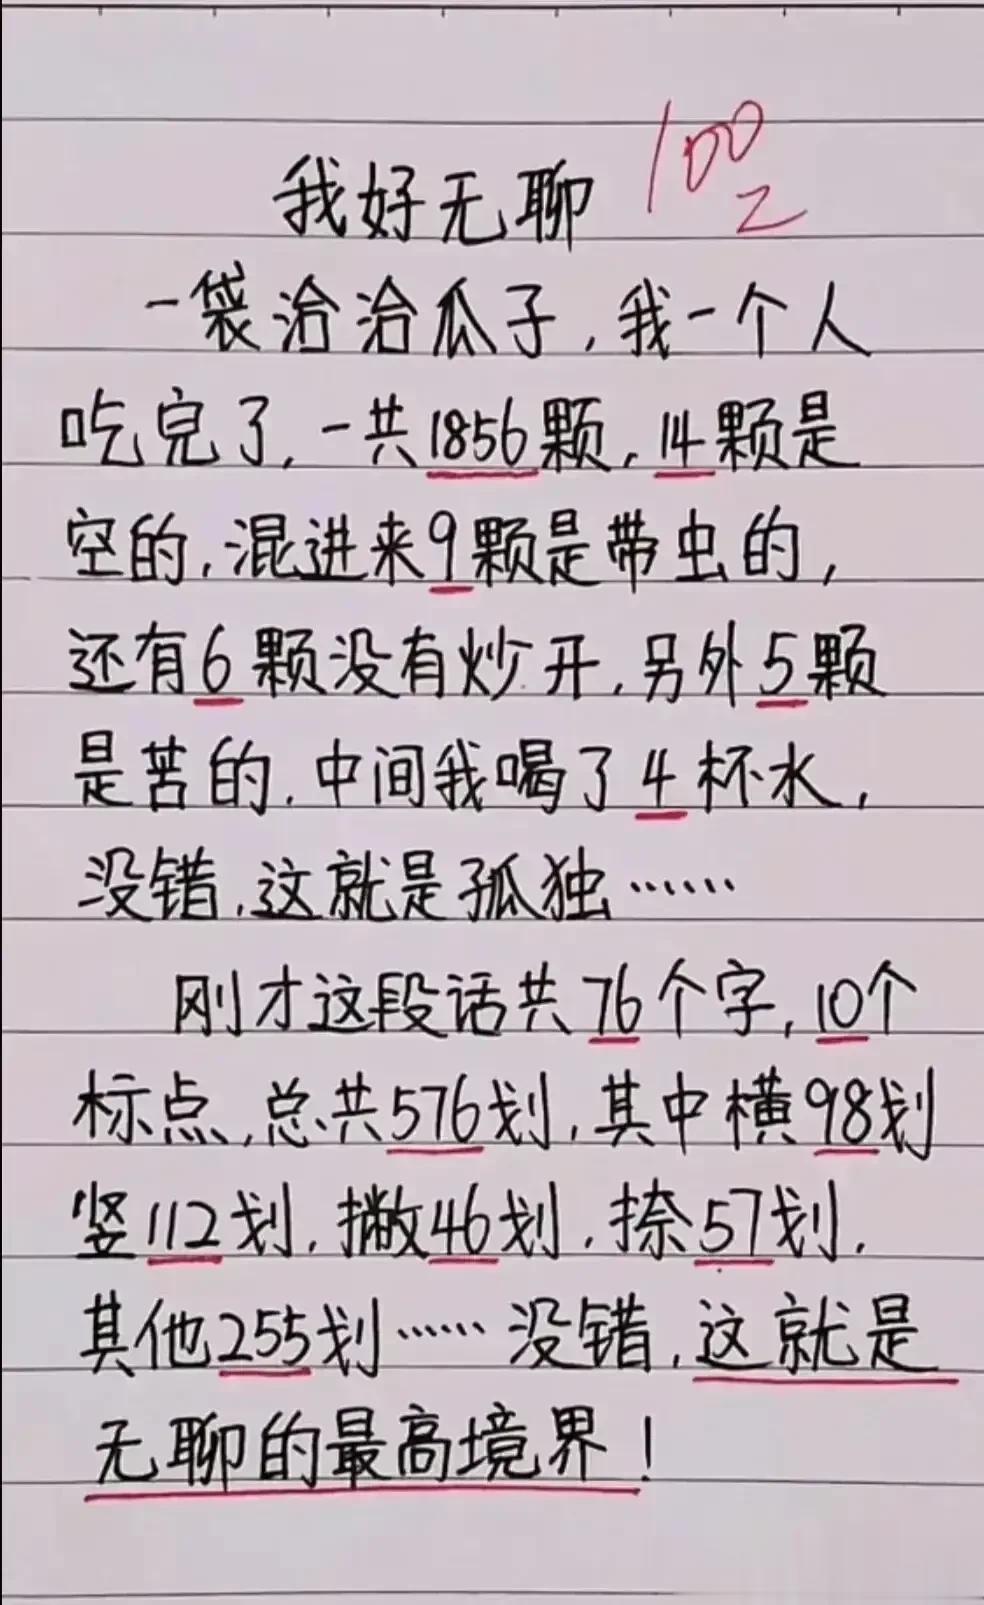 我好无聊 100
一袋洽洽瓜子,我一个人
吃完了,一共1856颗,14颗是
空的,混进来9颗是带虫的,
还有6颗没有炒开,另外5颗
是苦的,中间我喝了4杯水,
没错,这就是孤独……
刚才这段话共76个字,10个
标点,总共576划,其中横98划
竖112划,撇46划,捺57划,
其他255划……没错,这就是
无聊的最高境界!